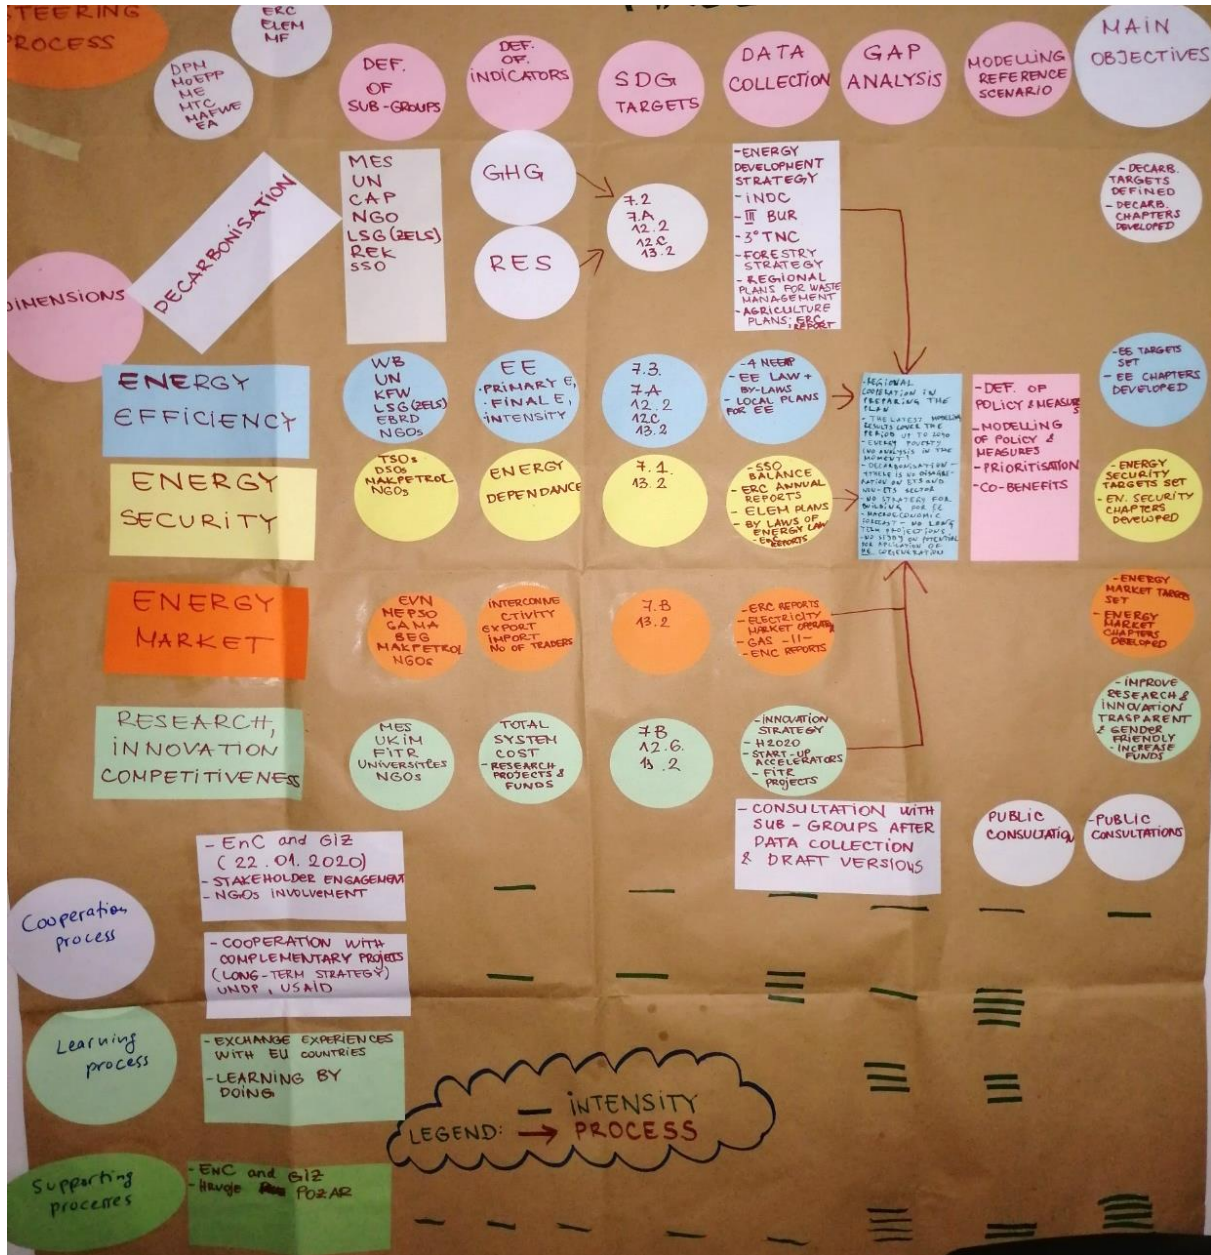 STEERING
PROCESS
ERC
ELEM
MF
DPM
MoEPP
ME
MTC
MAFWE
EA
DEF.
OF
SUB-GROUPS
DEF.
OF.
INDICATORS
SDG
TARGETS
DATA
COLLECTION
GAP
ANALYSIS
MODELLING
REFERENCE
SCENARIO
MAIN
OBJECTIVES
DIMENSIONS
DECARBONISATION
MES
UN
CAP
NGO
LSG (ZELS)
REK
SSO
GHG
RES
7.2
7.A
12.2
12.C
13.2
- ENERGY
DEVELOPMENT
STRATEGY
- iNDC
- III BUR
- 3° TNC
- FORESTRY
STRATEGY
- REGIONAL
PLANS FOR WASTE
MANAGEMENT
- AGRICULTURE
PLANS; ERC
REPORT
- DECARB.
TARGETS
DEFINED
- DECARB.
CHAPTERS
DEVELOPED
ENERGY
EFFICIENCY
WB
UN
KFW
LSG (ZELS)
EBRD
NGOs
EE
- PRIMARY E,
- FINAL E,
INTENSITY
7.3.
7.A
12.2
12C
13.2
- 4 NEEAP
- EE LAW +
BY-LAWS
- LOCAL PLANS
FOR EE
- REGIONAL
COOPERATION IN
PREPARING THE
PLAN
- THE LATEST MODELLING
RESULTS COVER THE
PERIOD UP TO
- ENERGY POVERTY
(NO ANALYSIS IN THE
MOMENT)
- DECARBONISATION -
THERE IS NO
ON ETS AND
NON-ETS SECTOR
- NO STRATEGY FOR
BUILDING FOR EE
- MACROECONOMIC
FORECAST - NO LONG
TERM PROJECTIONS
- NO STUDY ON POTENTIAL
FOR APPLICATION OF
COGENERATION
- DEF. OF
POLICY & MEASURES
- MODELLING
OF POLICY &
MEASURES
- PRIORITISATION
- CO-BENEFITS
- EE TARGETS
SET
- EE CHAPTERS
DEVELOPED
ENERGY
SECURITY
TSOs
DSOs
MAKPETROL
NGOs
ENERGY
DEPENDANCE
7.1.
13.2
- SSO
BALANCE
- ERC ANNUAL
REPORTS
- ELEM PLANS
- BY LAWS OF
ENERGY LAW
- ERC REPORTS
- ENERGY
SECURITY
TARGETS SET
- EN. SECURITY
CHAPTERS
DEVELOPED
ENERGY
MARKET
EVN
MEPSO
GAMA
BEG
MAKPETROL
NGOs
INTERCONNE
CTIVITY
EXPORT
IMPORT
NO OF TRADERS
7.B
13.2
- ERC REPORTS
- ELECTRICITY
MARKET OPERATOR
- GAS -II-
- ENC REPORTS
- ENERGY
MARKET TARGETS
SET
- ENERGY
MARKET
CHAPTERS
DEVELOPED
RESEARCH,
INNOVATION
COMPETITIVENESS
MES
UKIM
FITR
UNIVERSITIES
NGOs
TOTAL
SYSTEM
COST
- RESEARCH
PROJECTS &
FUNDS
7B
12.6.
13.2
- INNOVATION
STRATEGY
- H2020
- START-UP
ACCELERATORS
- FITR
PROJECTS
- IMPROVE
RESEARCH &
INNOVATION
TRASPARENT
& GENDER
FRIENDLY
- INCREASE
FUNDS
- CONSULTATION WITH
SUB-GROUPS AFTER
DATA COLLECTION
& DRAFT VERSIONS
PUBLIC
CONSULTATION
- PUBLIC
CONSULTATIONS
Cooperation
process
- EnC and GIZ
(22.01.2020)
- STAKEHOLDER ENGAGEMENT
- NGOs INVOLVEMENT
- COOPERATION WITH
COMPLEMENTARY PROJETS
(LONG-TERM STRATEGY)
UNDP, USAID
Learning
process
- EXCHANGE EXPERIENCES
WITH EU COUNTRIES
- LEARNING BY
DOING
LEGEND:
— INTENSITY
→ PROCESS
Supporting
processes
- ENC and GIZ
- Hrvoje POZAR